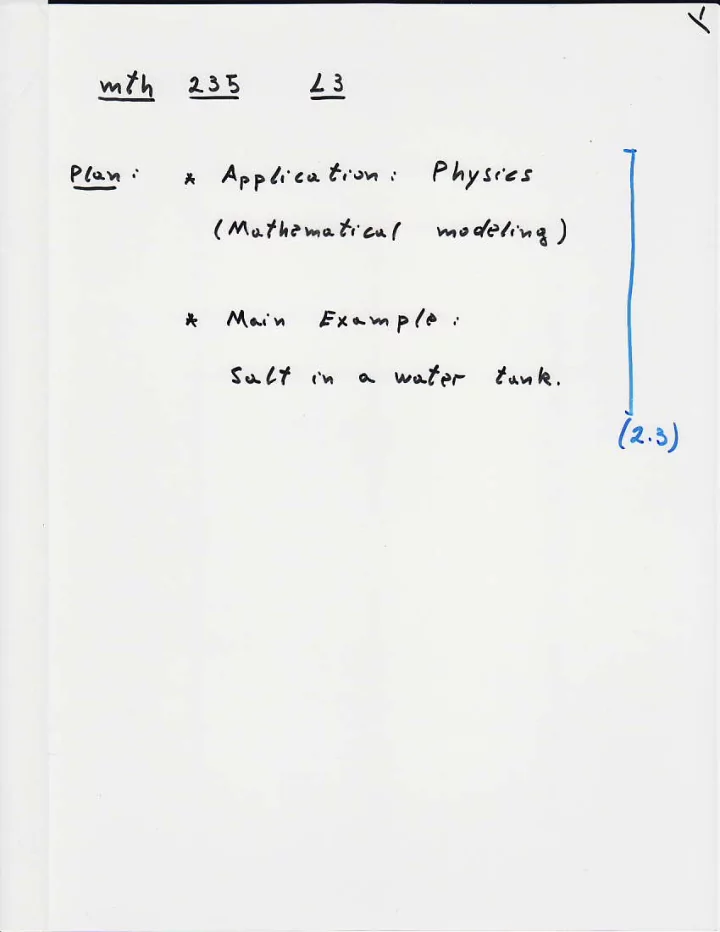 mth 235 L3
Plan: * Application: Physics
(Mathematical modeling)
* Main Example:
Salt in a water tank.
(2.3)